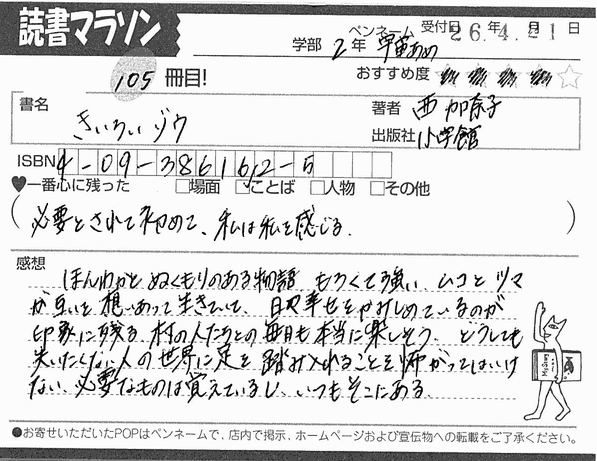 読書マラソン
学部 2年 ペンネーム 早苗あめ 受付日 26.4.21日
105冊目!
おすすめ度 ★★★★☆
書名
きいろいゾウ
著者 西加奈子
出版社 小学館
ISBN 4-09-386162-5
♥一番心に残った □場面 □ことば □人物 □その他
(必要とされて初めて、私は私を感じる。)
感想
ほんわかとぬくもりのある物語。もろくて強い、ムコとツマ
が互いを想いあって生きていて、日々幸せをかみしめているのが
印象に残る。村の人たちとの毎日も本当に楽しそう。どうしても
失いたくない人の世界に足を踏み入れることを怖がってはいけ
ない。必要なものは覚えているし、いつもそこにある。
●お寄せいただいたPOPはペンネームで、店内で掲示、ホームページおよび宣伝物への転載をご了承ください。